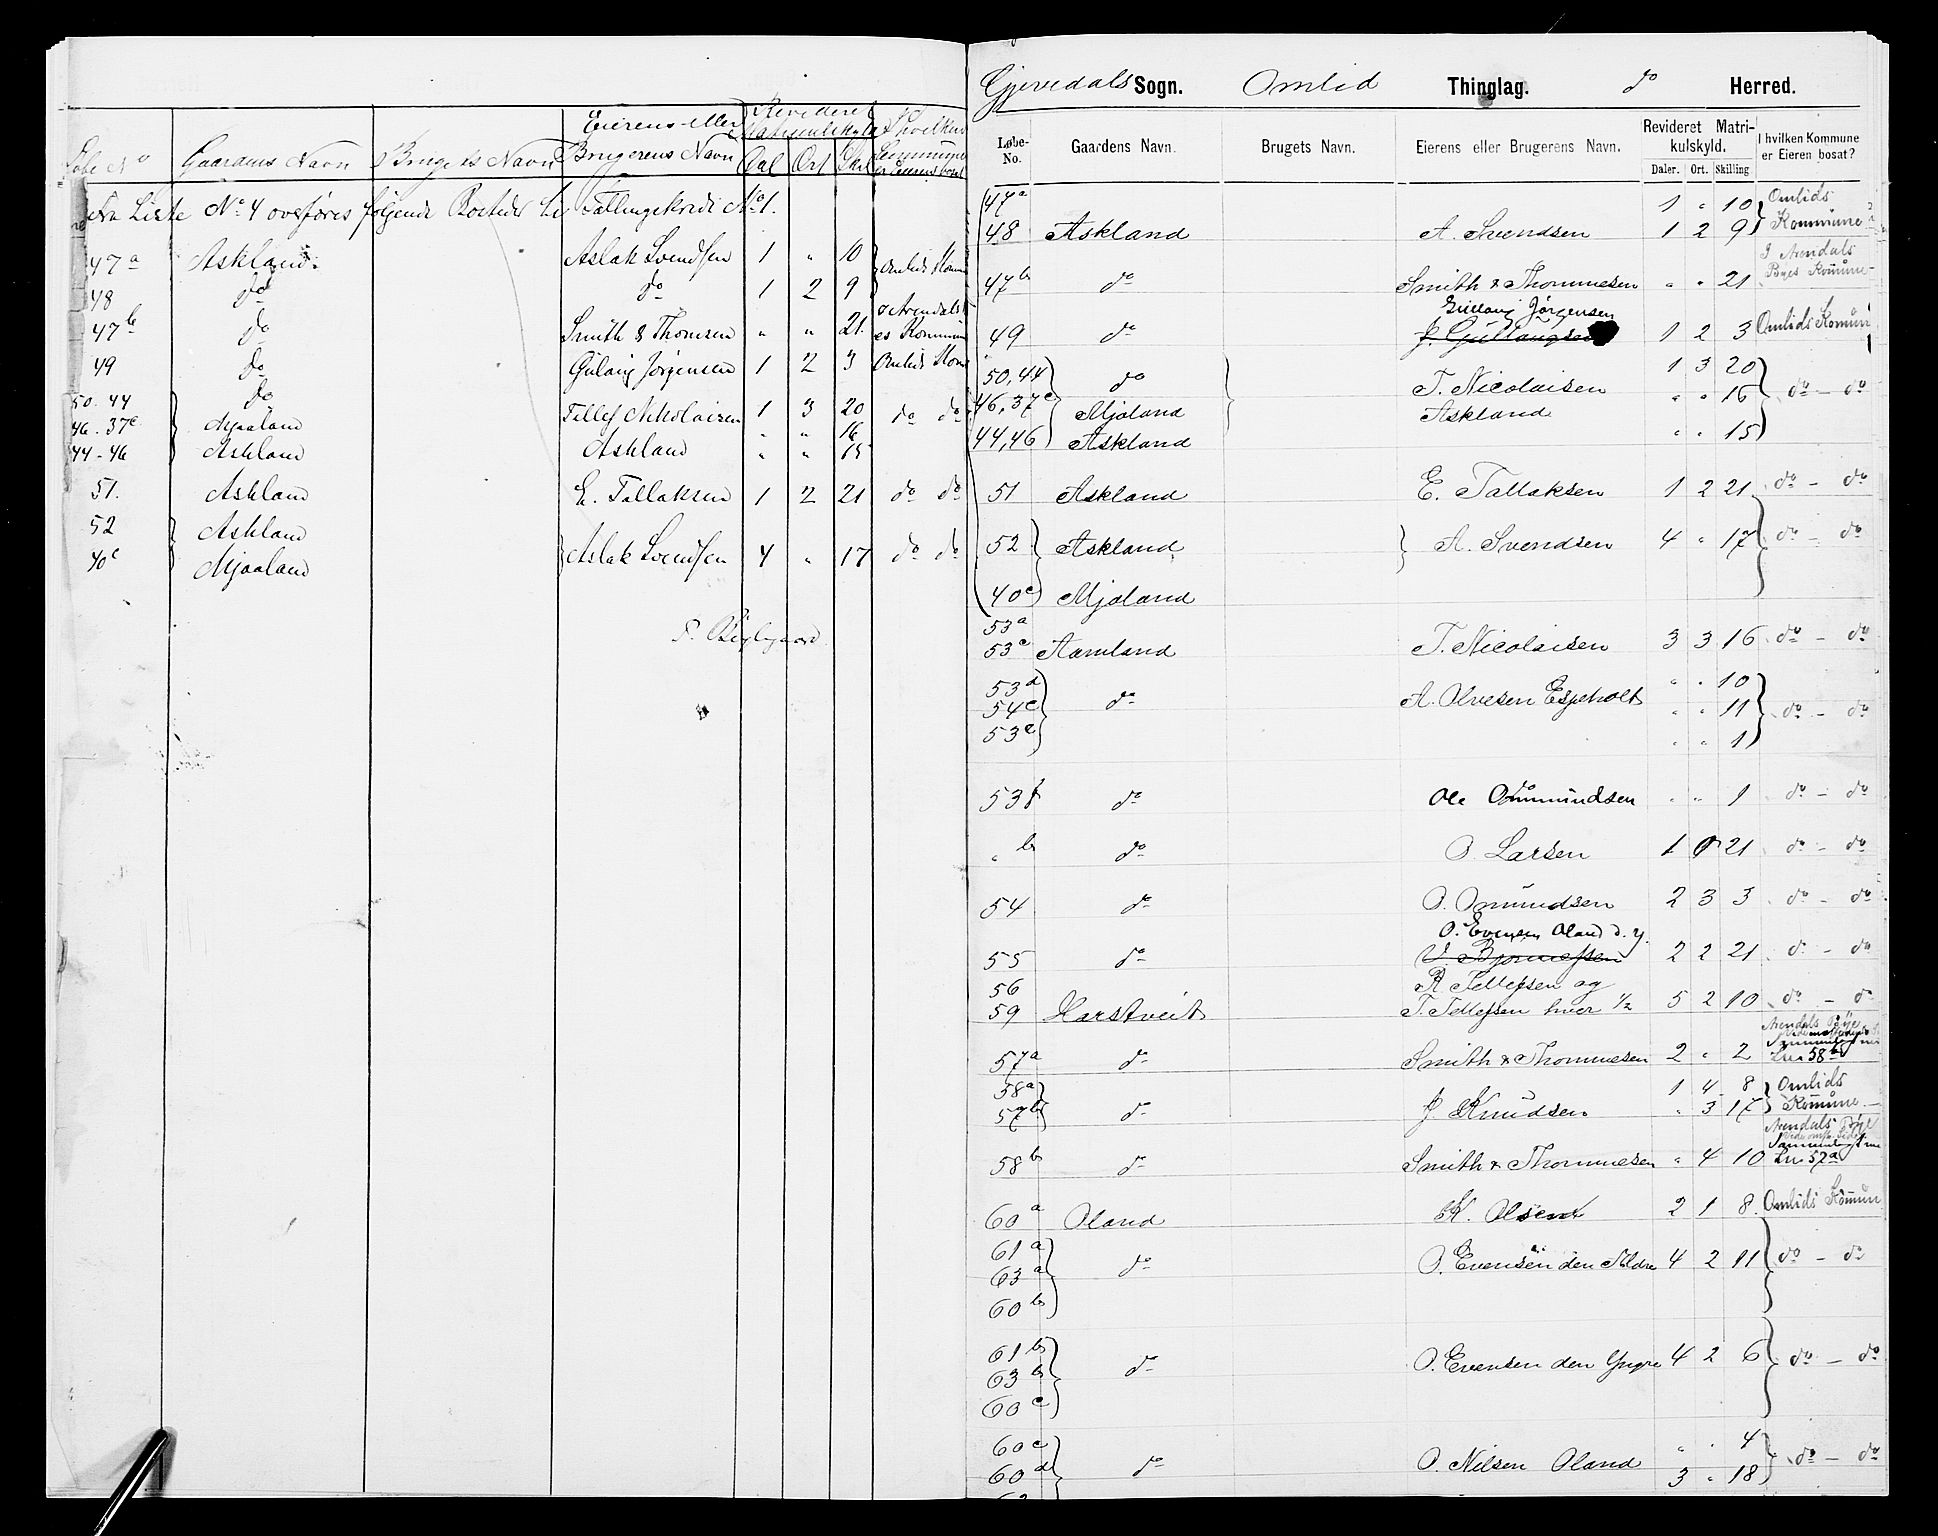 Eierens eller Revideret I hvilken
Løbe No Gaardens Navn Brugets Navn Brugerens Navn Matrikulskyld Kommune
Dal Ort Skil er Eieren bosat
Fra Liste No 4 overføres følgende Bosteder til Tællingskreds No 1.
47a Askland. Aslak Svendsen 1 " 10 Omlids Komm
48 do do 1 2 9
47b do Smith & Thomsen " " 21 Arendals
es Kommun
49 do Gülaüg Jørgensen 1 2 3 Omlids Kom
50. 44 do Tellef Nikolaisen 1 3 20 do do
46. 37c Mjaaland " " 16
44-46 Askland Askland " " 15
51. Askland E. Tallaksen 1 2 21 do do
52 Askland
40c Mjaaland Aslak Svendsen 4 " 17 do do
Gjevedals Sogn. Omlid Thinglag. do Herred.
Løbe-No. Gaardens Navn. Brugets Navn. Eierens eller Brugerens Navn. Revideret Matrikulskyld. I hvilken Kommune er Eieren bosat?
Daler. Ort. Skilling
47a 1 " 10 Omlids
48 Askland A. Svendsen 1 2 9 Kommüne
I Arendals
47b do Smith & Thommesen " " 21 Byes Kommüne
Güllaüg Jørgensen
49 do J. Güllaugsen 1 2 3 Omlids Kommün
50, 44 do T. Nicolaisen 1 3 20 do - do
46, 37c Mjaland Askland " " 16
44, 46 Askland " " 15
51 Askland E. Tallaksen 1 2 21 do - do
52 Askland A. Svendsen 4 " 17 do - do
40c Mjaland
53a
53c Aamland T. Nicolaisen 3 3 16 do - do
53d " " 10
54c do A. Olvesen Espeholt " " 11 do - do
53e " " 1
53f do Ole Ommundsen " " 1 do - do
" b do O. Larsen 1 0 21 do - do
54 do O. Omündsen 2 3 3 do - do
O. Evensen Oland d. y.
55 do 2 2 21 do - do
56 R. Tellefsen og
59 Harstveit T. Tellefsen hver 1/2 5 2 10 do - do
Arendals Bye
57a do Smith & Thommesen 2 " 2 Lnr 58b
58a 1 4 8 Omlids
57b do J Knüdsen " 3 17 Kommüne
Arendals Bye
58b do Smith & Thommesen " 4 10 Lnr 57a
60a Oland K. Olsen 2 1 8 Omlids Kommün
61a
63a do O. Evensen den Ældre 4 2 11 do - do
60b
61b
63b do O. Evensen den Yngre 4 2 6 do - do
60c
60c " " 4
60d do O. Nilsen Oland 3 " 18 do - do